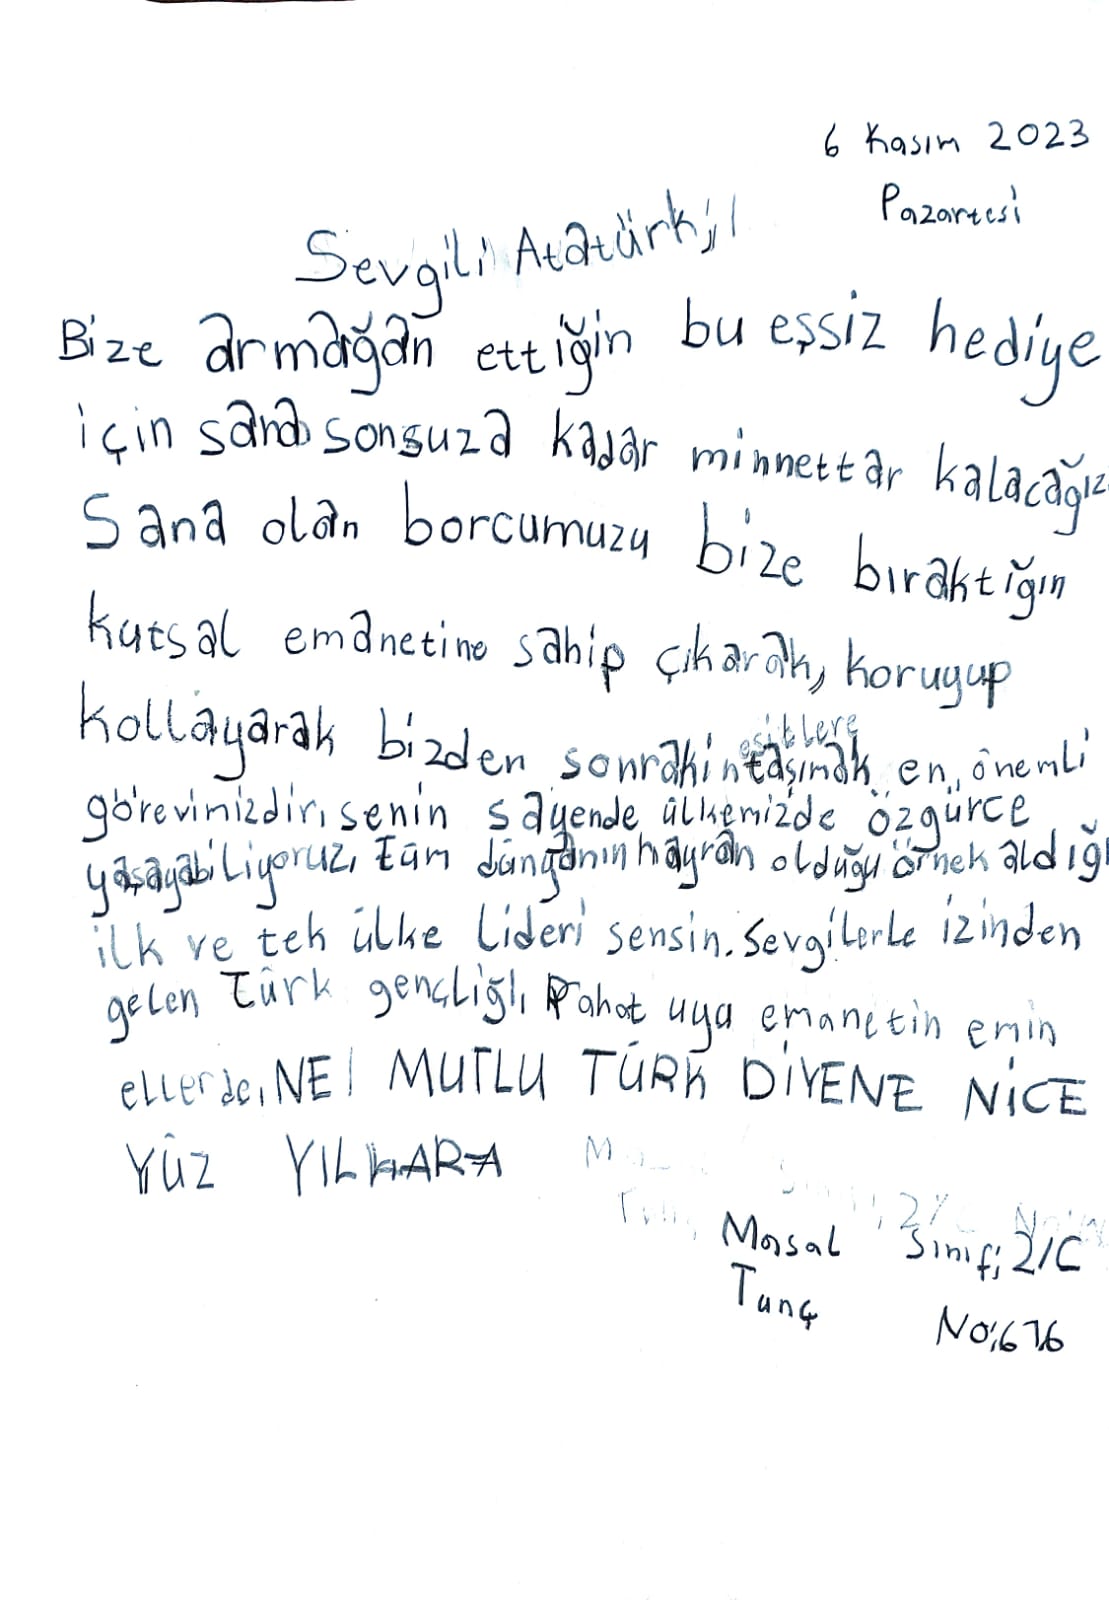 6 Kasım 2023
Pazartesi
Sevgili Atatürk;
Bize armağan ettiğin bu eşsiz hediye
için sana sonsuza kadar minnettar kalacağız.
Sana olan borcumuzu bize bıraktığın
kutsal emanetine sahip çıkarak, koruyup
kollayarak bizden sonraki nesitlere taşımak en önemli
görevimizdir, senin sayende ülkemizde özgürce
yaşayabiliyoruz, tüm dünyanın hayran olduğu örnek aldığı
ilk ve tek ülke lideri sensin. Sevgilerle izinden
gelen Türk gençliği, Rahat uya emanetin emin
ellerde, NE! MUTLU TÜRK DİYENE NİCE
YÜZ YILLARA
Masal Sınıf; 2/C
Tunç No; 676